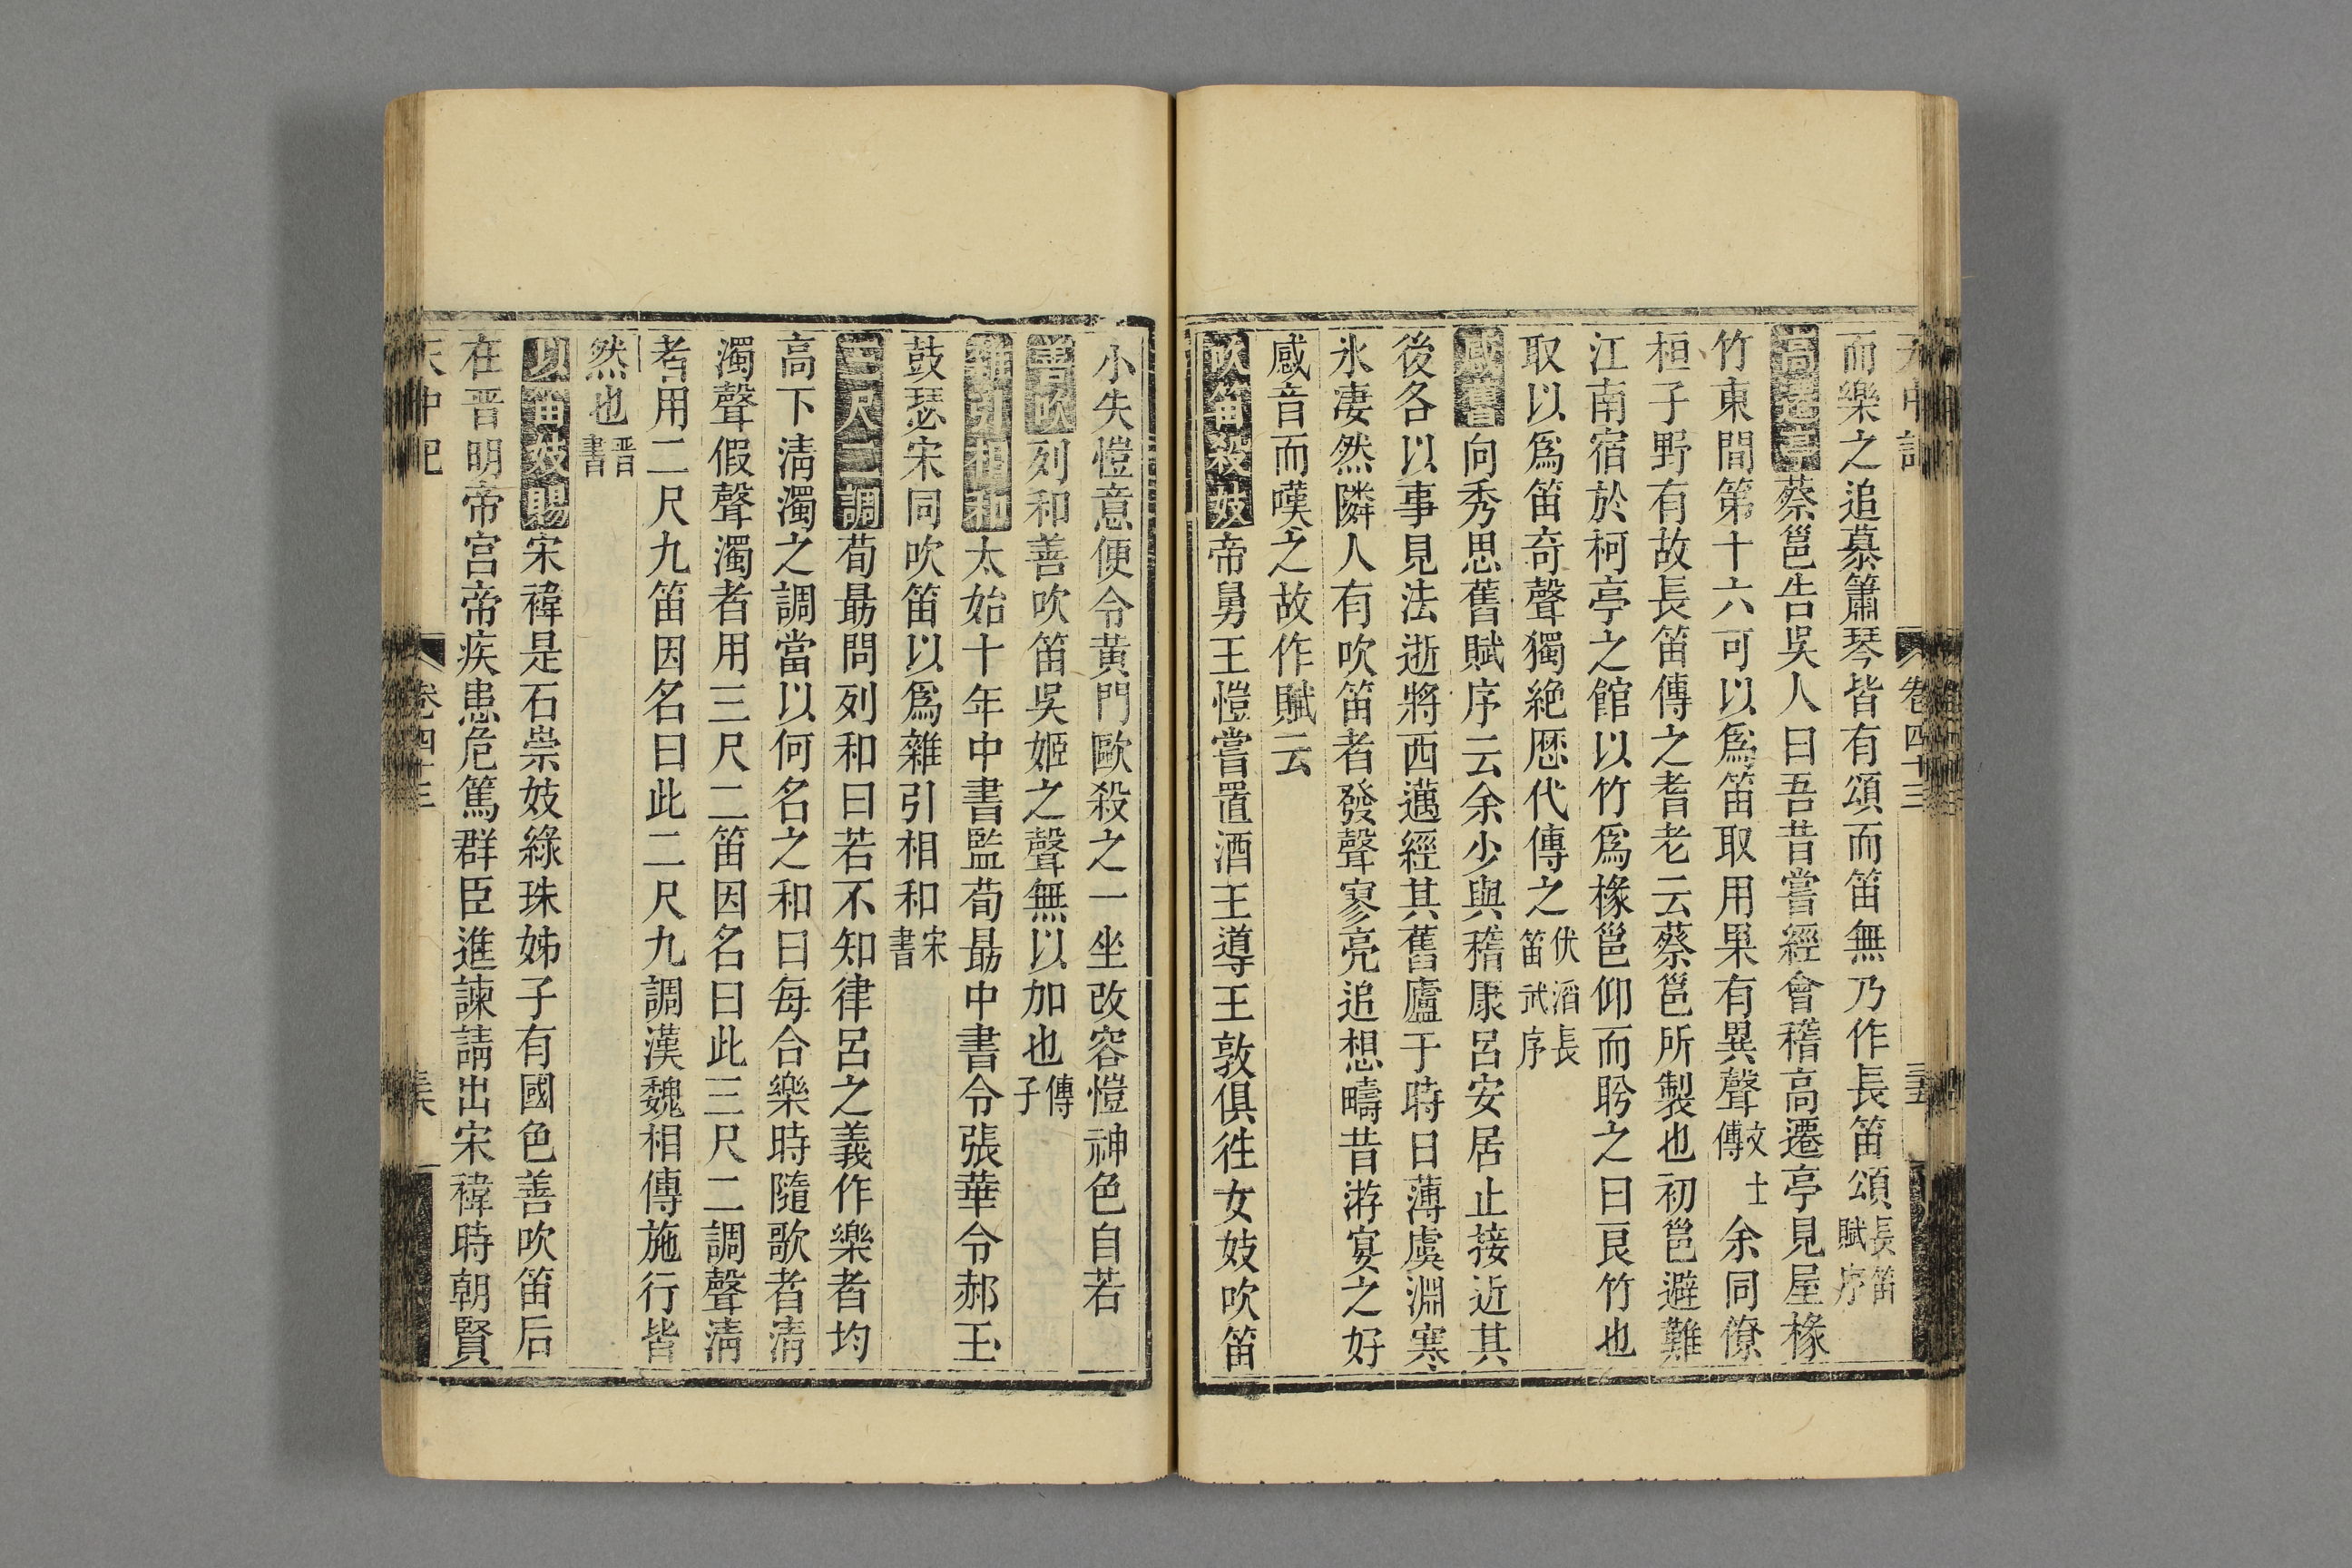 天中記 卷四十三 三五
而樂之追慕簫琴皆有頌而笛無乃作長笛頌長笛賦序
高遷亭蔡邕告吳人曰吾昔嘗經會稽高遷亭見屋椽
竹東間第十六可以爲笛取用果有異聲文士傳余同僚
桓子野有故長笛傳之耆老云蔡邕所製也初邕避難
江南宿於柯亭之館以竹爲椽邕仰而盻之曰良竹也
取以爲笛奇聲獨絶歷代傳之伏滔長笛武序
感舊向秀思舊賦序云余少與稽康呂安居止接近其
後各以事見法逝將西邁經其舊廬于時日薄虞淵寒
氷凄然隣人有吹笛者發聲寥亮追想疇昔游宴之好
感音而嘆之故作賦云
吹笛殺妓帝舅王愷嘗置酒王導王敦俱徃女妓吹笛
小失愷意便令黃門歐殺之一坐改容愷神色自若
善吹列和善吹笛吳姬之聲無以加也傅子
雜引相和太始十年中書監荀勗中書令張華令郝玉
鼓瑟宋同吹笛以爲雜引相和宋書
三尺二調荀勗問列和曰若不知律呂之義作樂者均
高下淸濁之調當以何名之和曰每合樂時隨歌者淸
濁聲假聲濁者用三尺二笛因名曰此三尺二調聲淸
者用二尺九笛因名曰此二尺九調漢魏相傳施行皆
然也晋書
以笛妓賜宋褘是石崇妓綠珠姊子有國色善吹笛后
在晋明帝宫帝疾患危篤群臣進諫請出宋褘時朝賢
天中記 卷四十三